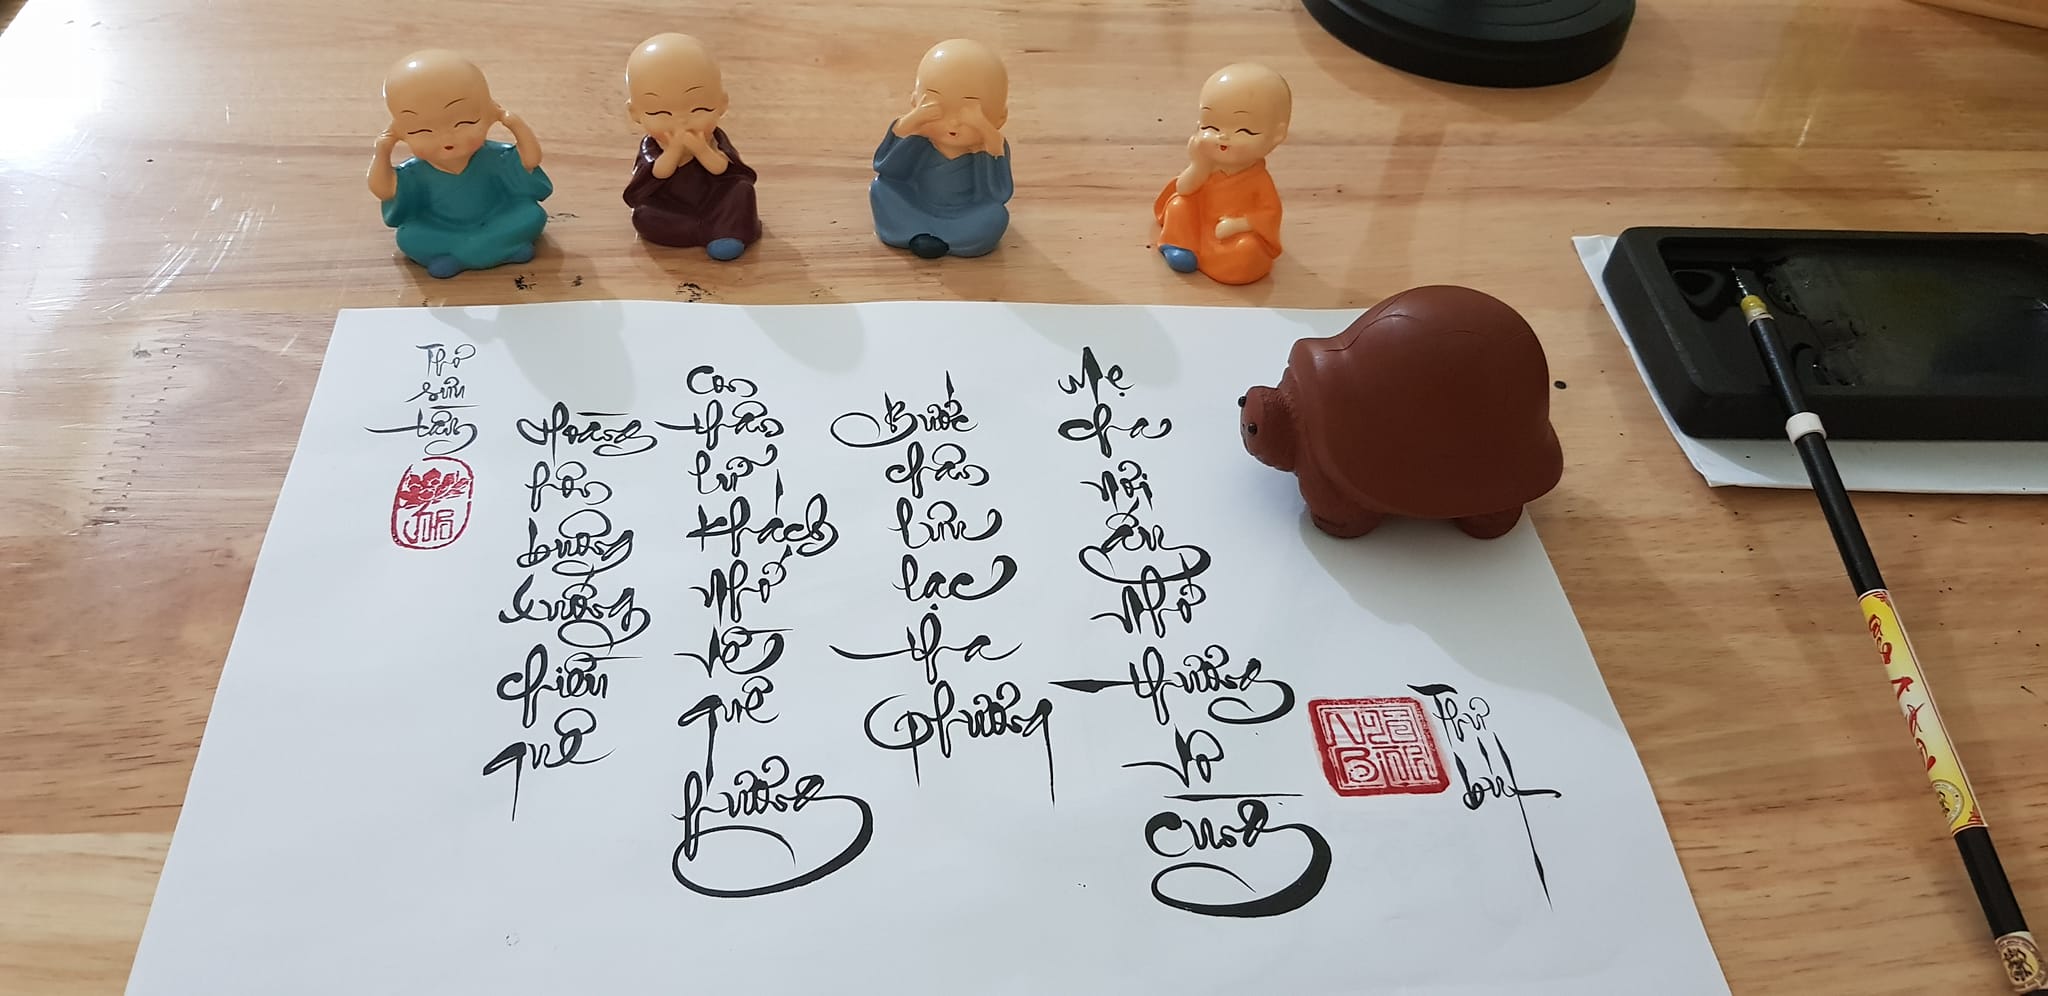 Thơ sưu tầm
Hoàng hôn buông xuống chiều quê
Con thân lữ khách nhớ về quê hương
Bước chân lưu lạc tha phương
Mẹ cha nơi ấy nhớ thương vô cùng
Thư bút